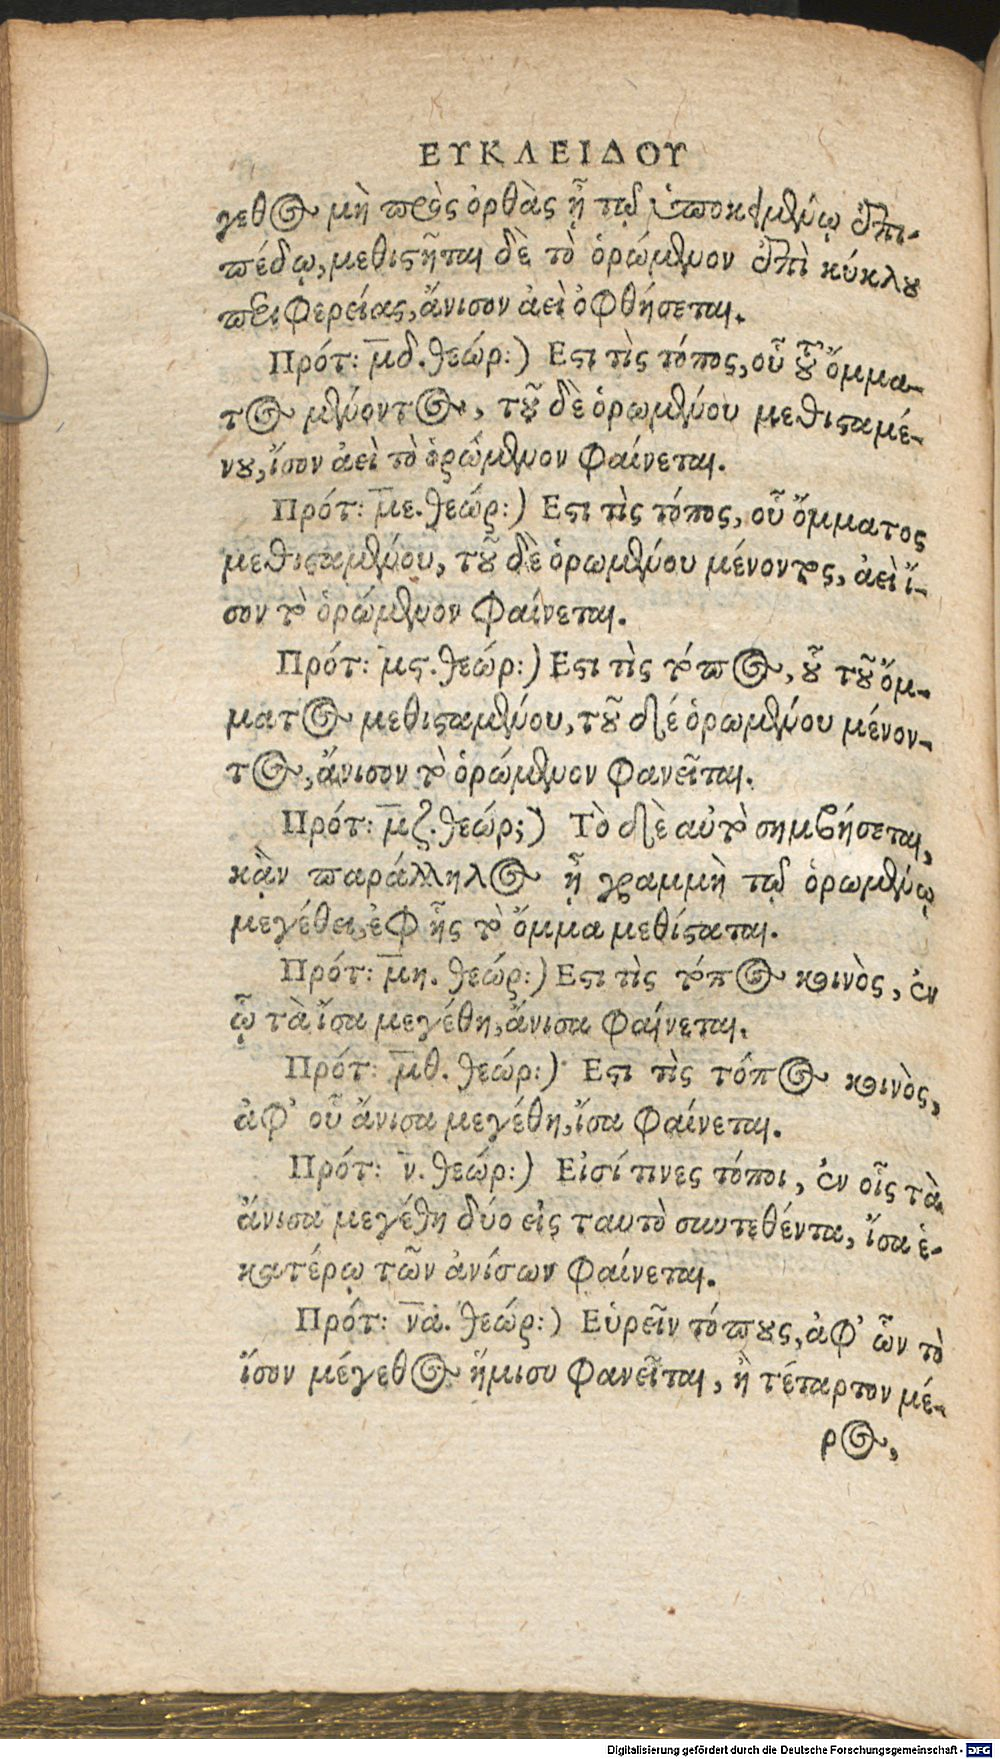 ΕΥΚΛΕΙΔΟΥ
γεθος μὴ πρὸς ὀρθὰς ᾖ τῷ ὑποκειμένῳ ἐπι-
πέδῳ, μεθιστῆται δὲ τὸ ὁρώμενον ἐπὶ κύκλου
περιφερείας, ἄνισον ἀεὶ ὀφθήσεται.
Πρότ: μδ. θεώρ:) Εστι τὶς τόπος, οὗ τοῦ ὄμμα-
τος μένοντος, τοῦ δὲ ὁρωμένου μεθισταμέ-
νου, ἴσον ἀεὶ τὸ ὁρώμενον φαίνεται.
Πρότ: με. θεώρ:) Εστι τὶς τόπος, οὗ ὄμματος
μεθισταμένου, τοῦ δὲ ὁρωμένου μένοντος, ἀεὶ ἴ-
σον τὸ ὁρώμενον φαίνεται.
Πρότ: μς. θεώρ:) Εστι τὶς τόπος, οὗ τοῦ ὄμ-
ματος μεθισταμένου, τοῦ δέ ὁρωμένου μένον-
τος, ἄνισον τὸ ὁρώμενον φανεῖται.
Πρότ: μζ. θεώρ;) Τὸ δὲ αὐτὸ σημβήσεται,
κᾂν παράλληλος ᾖ γραμμὴ τῷ ὁρωμένῳ
μεγέθει, ἐφ ἧς τὸ ὄμμα μεθίσταται.
Πρότ: μη. θεώρ:) Εστι τὶς τόπος κοινὸς, ἐν
ᾧ τὰ ἴσα μεγέθη, ἄνισα φαίνεται.
Πρότ: μθ. θεώρ:) Εστι τὶς τόπος κοινὸς,
ἀφ' οὗ ἄνισα μεγέθη, ἴσα φαίνεται.
Πρότ: ν. θεώρ:) Εἰσί τινες τόποι, ἐν οἷς τὰ
ἄνισα μεγέθη δύο εἰς ταυτὸ συντεθέντα, ἴσα ἑ-
κατέρῳ τῶν ἀνίσων φαίνεται.
Πρότ: να. θεώρ:) Εὑρεῖν τόπους, ἀφ' ὧν τὸ
ἴσον μέγεθος ἥμισυ φανεῖται, ἢ τέταρτον μέ-
ρος,
Digitalisierung gefördert durch die Deutsche Forschungsgemeinschaft - DFG